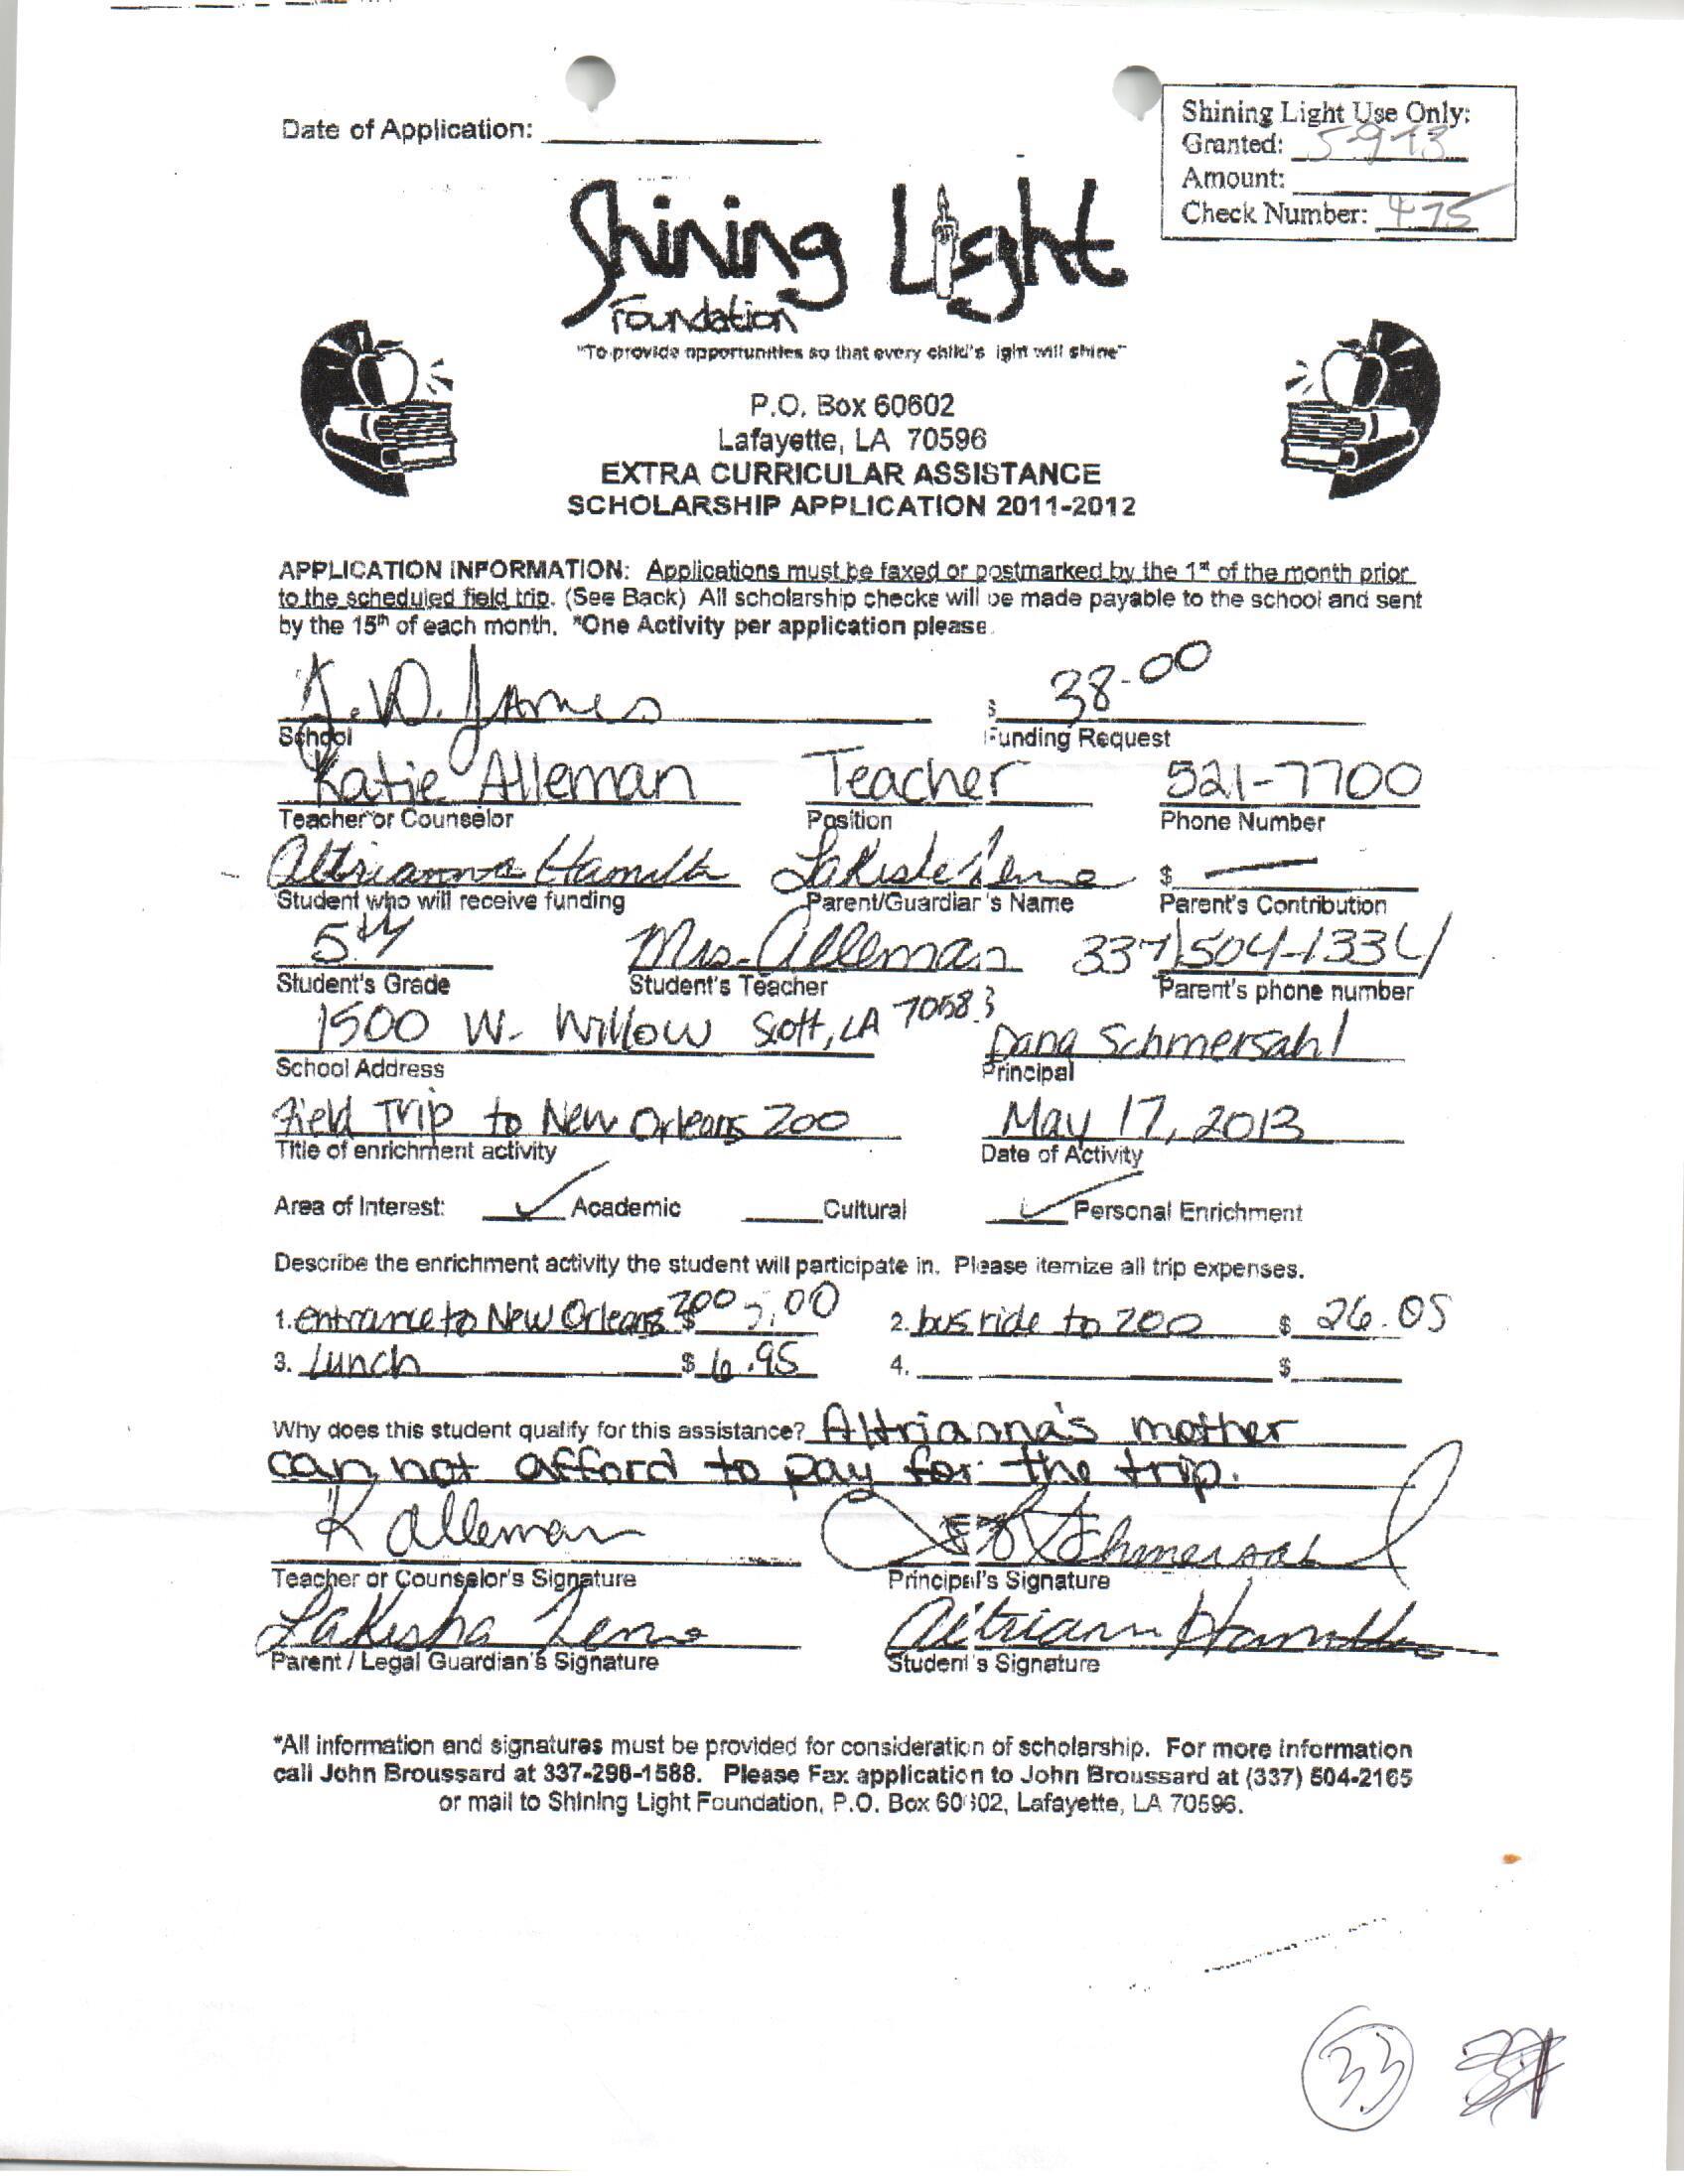 Date of Application:
Shining Light Use Only:
Granted: 5-9-13
Amount:
Check Number: 475
Shining Light
Foundation
"To provide opportunities so that every child's ight will shine"
P.O. Box 60602
Lafayette, LA 70596
EXTRA CURRICULAR ASSISTANCE
SCHOLARSHIP APPLICATION 2011-2012
APPLICATION INFORMATION: Applications must be faxed or postmarked by the 1st of the month prior
to the scheduled field trip. (See Back) All scholarship checks will be made payable to the school and sent
by the 15th of each month. *One Activity per application please.
James $ 38.00
School Funding Request
Katie Alleman Teacher 521-7700
Teacher or Counselor Position Phone Number
Altrianna Hamilt $ —
Student who will receive funding Parent/Guardian's Name Parent's Contribution
5th Mrs. Alleman 337/504-1334
Student's Grade Student's Teacher Parent's phone number
1500 W. Willow Scott, LA 70583 Dana Schmersahl
School Address Principal
Field Trip to New Orleans Zoo May 17, 2013
Title of enrichment activity Date of Activity
Area of Interest: ✓ Academic Cultural ✓ Personal Enrichment
Describe the enrichment activity the student will participate in. Please itemize all trip expenses.
1. entrance to New Orleans Zoo $ 5.00 2. bus ride to zoo $ 26.05
3. Lunch $ 6.95 4. $
Why does this student qualify for this assistance? Altrianna's mother
can not afford to pay for the trip.
K Alleman Schmersahl
Teacher or Counselor's Signature Principal's Signature
Lakisha Altriann
Parent / Legal Guardian's Signature Student's Signature
*All information and signatures must be provided for consideration of scholarship. For more information
call John Broussard at 337-298-1588. Please Fax application to John Broussard at (337) 504-2165
or mail to Shining Light Foundation, P.O. Box 60602, Lafayette, LA 70596.
33